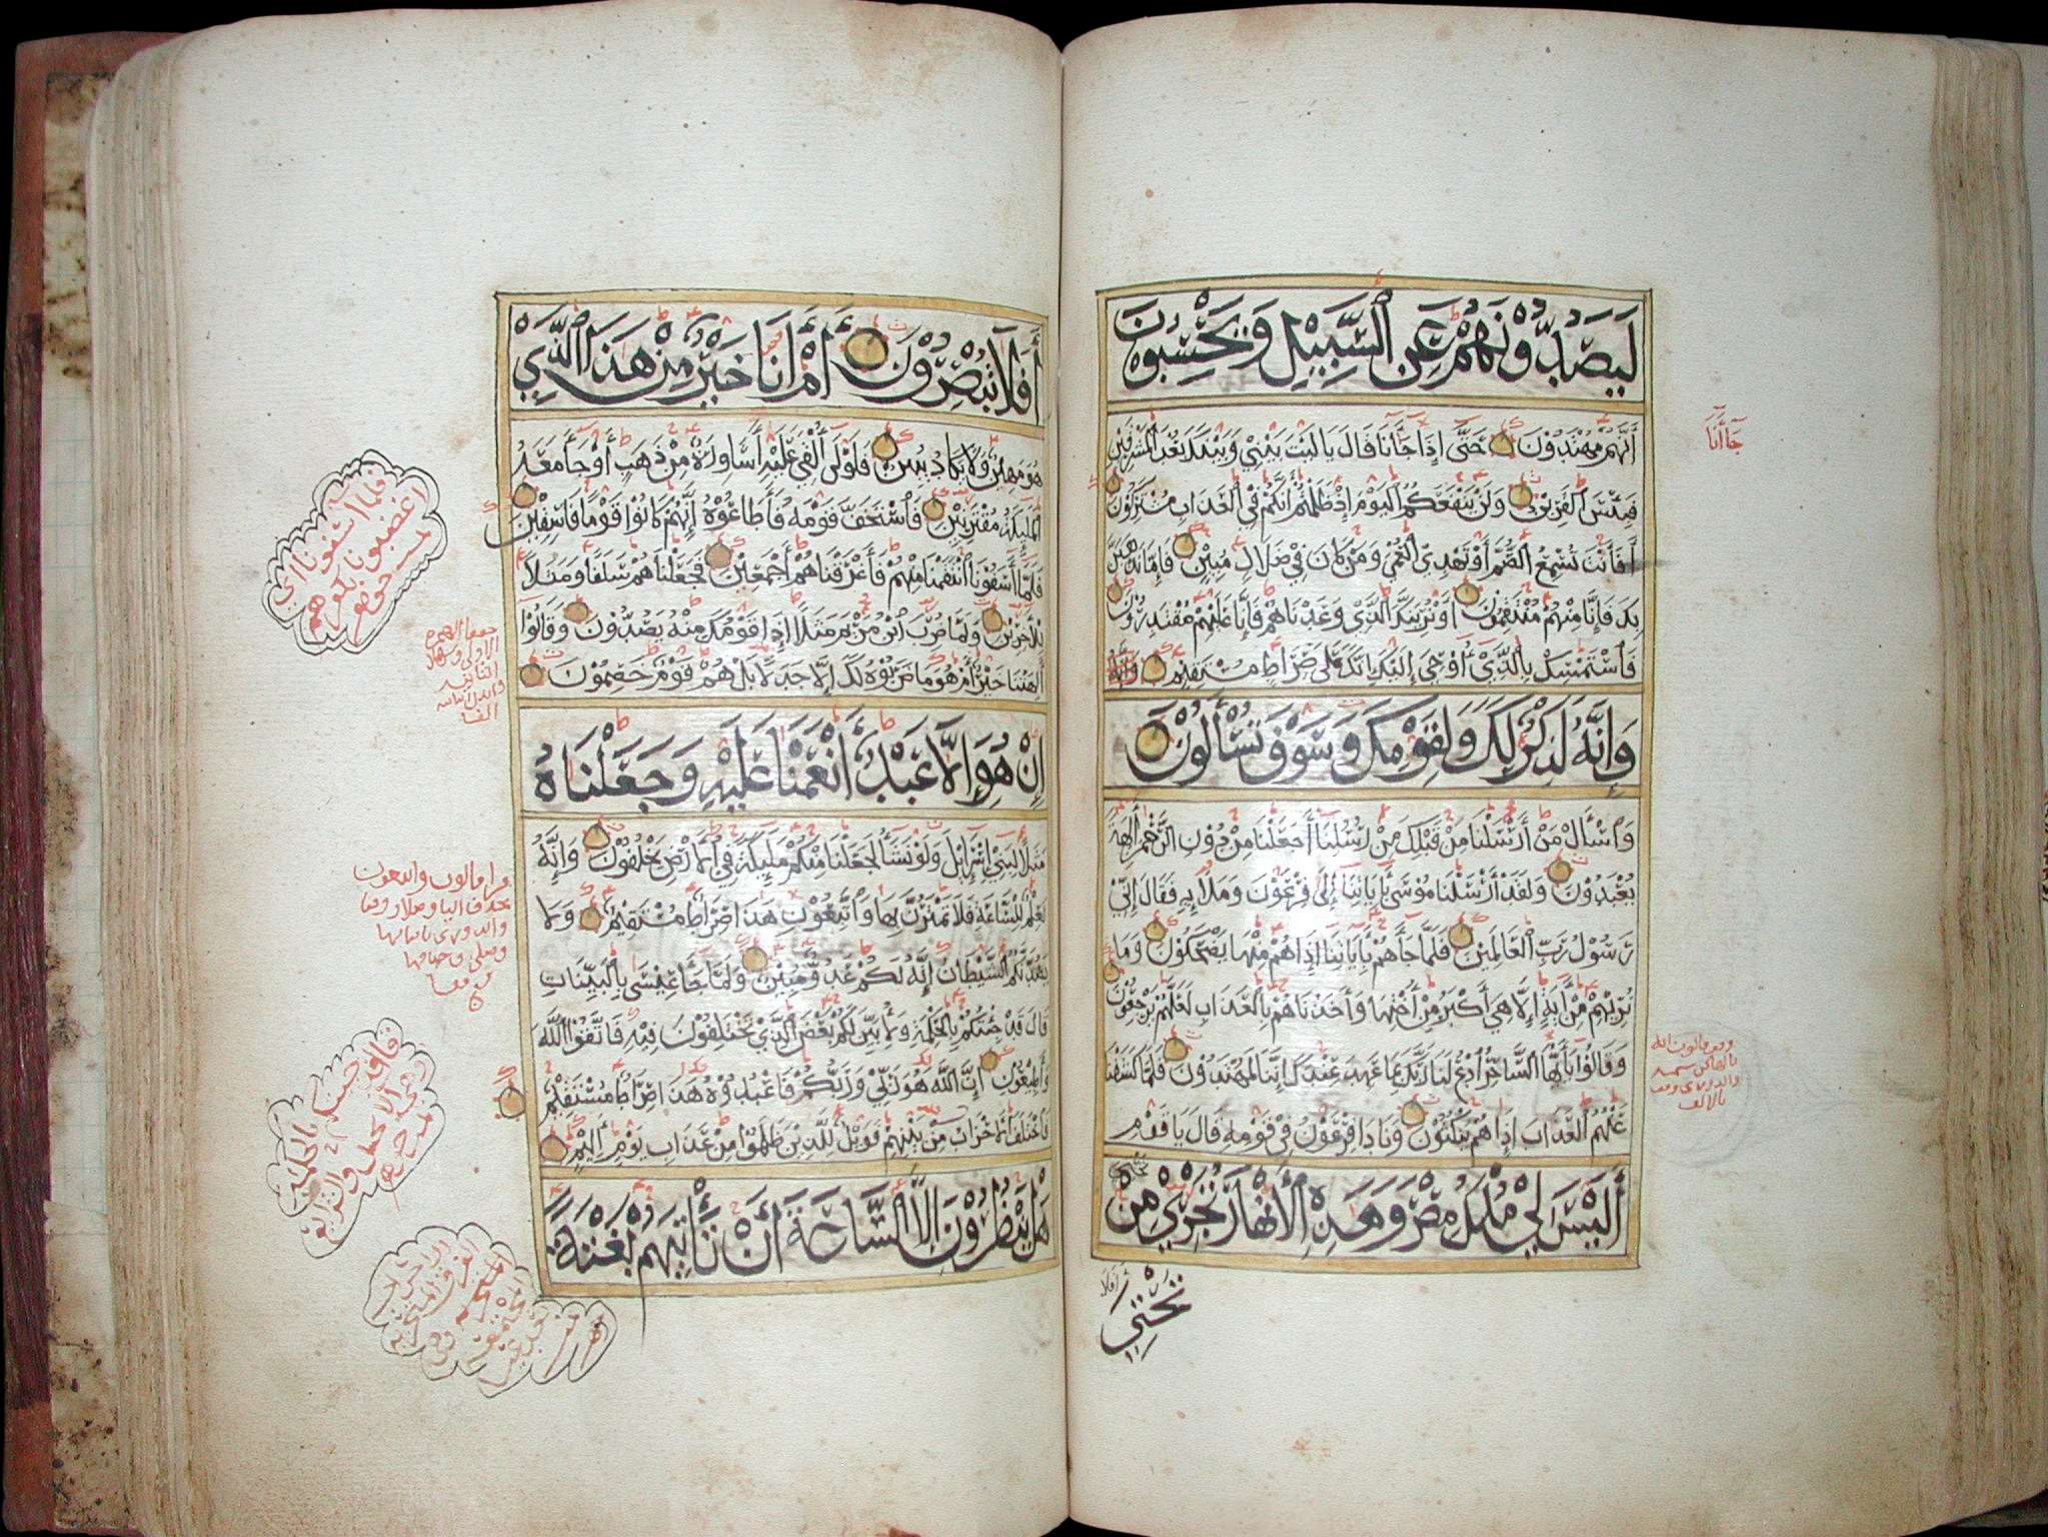 لَيَصُدُّوْنَهُمْ عَنِ ٱلسَّبِيْلِ وَيَحْسِبُوْنَ
أَنَّهُمْ مُهْتَدُوْنَ حَتَّى إِذَا جَآنَا قَالَ يَالَيْتَ بَيْنِي وَبَيْنَكَ بُعْدَ ٱلْمَشْرِقَيْنِ
فَبِئْسَ ٱلْقَرِيْنُ وَلَنْ يَنْفَعَكُمُ ٱلْيَوْمَ إِذْ ظَلَمْتُمْ أَنَّكُمْ فِي ٱلْعَذَابِ مُشْتَرِكُوْنَ
أَفَأَنْتَ تُسْمِعُ ٱلصُّمَّ أَوْ تَهْدِي ٱلْعُمْيَ وَمَنْ كَانَ فِي ضَلَالٍ مُبِيْنٍ فَإِمَّا نَذْهَبَنَّ
بِكَ فَإِنَّا مِنْهُمْ مُنْتَقِمُوْنَ أَوْ نُرِيَنَّكَ ٱلَّذِيْ وَعَدْنَاهُمْ فَإِنَّا عَلَيْهِمْ مُقْتَدِرُوْنَ
فَٱسْتَمْسِكْ بِٱلَّذِيْ أُوْحِيَ إِلَيْكَ إِنَّكَ عَلَى صِرَاطٍ مُسْتَقِيْمٍ وَإِنَّهُ
وَإِنَّهُ لَذِكْرٌ لَكَ وَلِقَوْمِكَ وَسَوْفَ تُسْأَلُوْنَ
وَٱسْأَلْ مَنْ أَرْسَلْنَا مِنْ قَبْلِكَ مِنْ رُسُلِنَا أَجَعَلْنَا مِنْ دُوْنِ ٱلرَّحْمٰنِ آلِهَةً
يُعْبَدُوْنَ وَلَقَدْ أَرْسَلْنَا مُوْسَى بِآيَاتِنَا إِلَى فِرْعَوْنَ وَمَلَإِيهِ فَقَالَ إِنِّيْ
رَسُوْلُ رَبِّ ٱلْعَالَمِيْنَ فَلَمَّا جَاءَهُمْ بِآيَاتِنَا إِذَا هُمْ مِنْهَا يَضْحَكُوْنَ وَمَا
نُرِيْهِمْ مِنْ آيَةٍ إِلَّا هِيَ أَكْبَرُ مِنْ أُخْتِهَا وَأَخَذْنَاهُمْ بِٱلْعَذَابِ لَعَلَّهُمْ يَرْجِعُوْنَ
وَقَالُوْا يَاأَيُّهَا ٱلسَّاحِرُ ٱدْعُ لَنَا رَبَّكَ بِمَا عَهِدَ عِنْدَكَ إِنَّنَا لَمُهْتَدُوْنَ فَلَمَّا كَشَفْنَا
عَنْهُمُ ٱلْعَذَابَ إِذَا هُمْ يَنْكُثُوْنَ وَنَادَا فِرْعَوْنُ فِي قَوْمِهِ قَالَ يَاقَوْمِ
أَلَيْسَ لِيْ مُلْكُ مِصْرَ وَهَذِهِ ٱلْأَنْهَارُ تَجْرِيْ مِنْ
تَحْتِي
جَآأَنَا
أَفَلَا تُبْصِرُوْنَ أَمْ أَنَا خَيْرٌ مِنْ هَذَا ٱلَّذِي
هُوَ مَهِيْنٌ وَلَا يَكَادُ يُبِيْنُ فَلَوْلَا أُلْقِيَ عَلَيْهِ أَسَاوِرَةٌ مِنْ ذَهَبٍ أَوْ جَآءَ مَعَهُ
ٱلْمَلَئِكَةُ مُقْتَرِنِيْنَ فَٱسْتَخَفَّ قَوْمَهُ فَأَطَاعُوْهُ إِنَّهُمْ كَانُوْا قَوْمًا فَاسِقِيْنَ
فَلَمَّا آسَفُوْنَا ٱنْتَقَمْنَا مِنْهُمْ فَأَغْرَقْنَاهُمْ أَجْمَعِيْنَ فَجَعَلْنَاهُمْ سَلَفًا وَمَثَلًا
لِلْآخِرِيْنَ وَلَمَّا ضُرِبَ ٱبْنُ مَرْيَمَ مَثَلًا إِذَا قَوْمُكَ مِنْهُ يَصُدُّوْنَ وَقَالُوْا
أَآلِهَتُنَا خَيْرٌ أَمْ هُوَ مَا ضَرَبُوْهُ لَكَ إِلَّا جَدَلًا بَلْ هُمْ قَوْمٌ خَصِمُوْنَ
إِنْ هُوَ إِلَّا عَبْدٌ أَنْعَمْنَا عَلَيْهِ وَجَعَلْنَاهُ
مَثَلًا لِبَنِي إِسْرَائِيْلَ وَلَوْ نَشَآءُ لَجَعَلْنَا مِنْكُمْ مَلَئِكَةً فِي ٱلْأَرْضِ يَخْلُفُوْنَ وَإِنَّهُ
لَعِلْمٌ لِلسَّاعَةِ فَلَا تَمْتَرُنَّ بِهَا وَٱتَّبِعُوْنِ هَذَا صِرَاطٌ مُسْتَقِيْمٌ وَلَا
يَصُدَّنَّكُمُ ٱلشَّيْطَانُ إِنَّهُ لَكُمْ عَدُوٌّ مُبِيْنٌ وَلَمَّا جَآءَ عِيْسَى بِٱلْبَيِّنَاتِ
قَالَ قَدْ جِئْتُكُمْ بِٱلْحِكْمَةِ وَلِأُبَيِّنَ لَكُمْ بَعْضَ ٱلَّذِيْ تَخْتَلِفُوْنَ فِيْهِ فَاتَّقُوْا ٱللَّهَ
وَأَطِيْعُوْنِ إِنَّ ٱللَّهَ هُوَ رَبِّيْ وَرَبُّكُمْ فَٱعْبُدُوْهُ هَذَا صِرَاطٌ مُسْتَقِيْمٌ
فَٱخْتَلَفَ ٱلْأَحْزَابُ مِنْ بَيْنِهِمْ فَوَيْلٌ لِلَّذِيْنَ ظَلَمُوْا مِنْ عَذَابِ يَوْمٍ أَلِيْمٍ
هَلْ يَنْظُرُوْنَ إِلَّا ٱلسَّاعَةَ أَنْ تَأْتِيَهُمْ بَغْتَةً
فلما اسفونا اي
اغضبونا بكفرهم